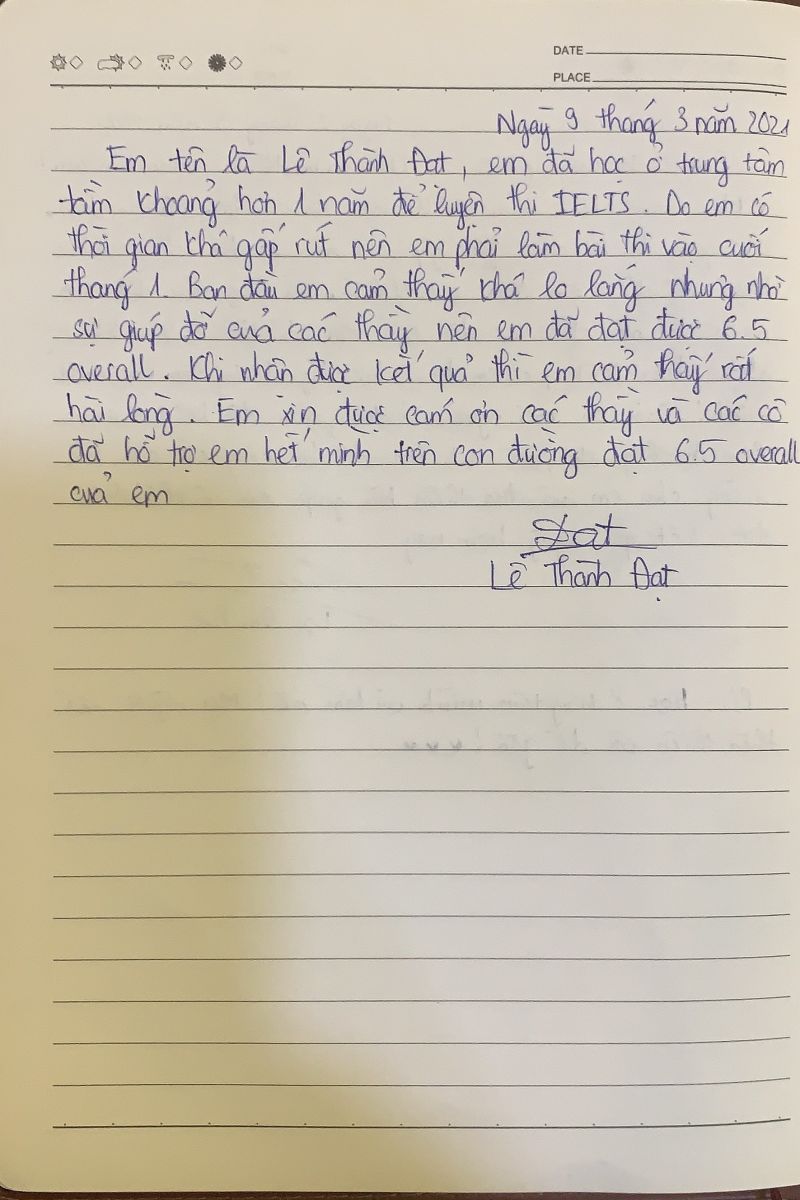 DATE
PLACE
Ngày 9 tháng 3 năm 2021
Em tên là Lê Thành Đạt, em đã học ở trung tâm
tầm khoảng hơn 1 năm để luyện thi IELTS. Do em có
thời gian khá gấp rút nên em phải làm bài thi vào cuối
tháng 1. Ban đầu em cảm thấy khá lo lắng nhưng nhờ
sự giúp đỡ của các thầy nên em đã đạt được 6.5
overall. Khi nhận được kết quả thì em cảm thấy rất
hài lòng. Em xin được cám ơn các thầy và các cô
đã hỗ trợ em hết mình trên con đường đạt 6.5 overall
của em
Đạt
Lê Thành Đạt